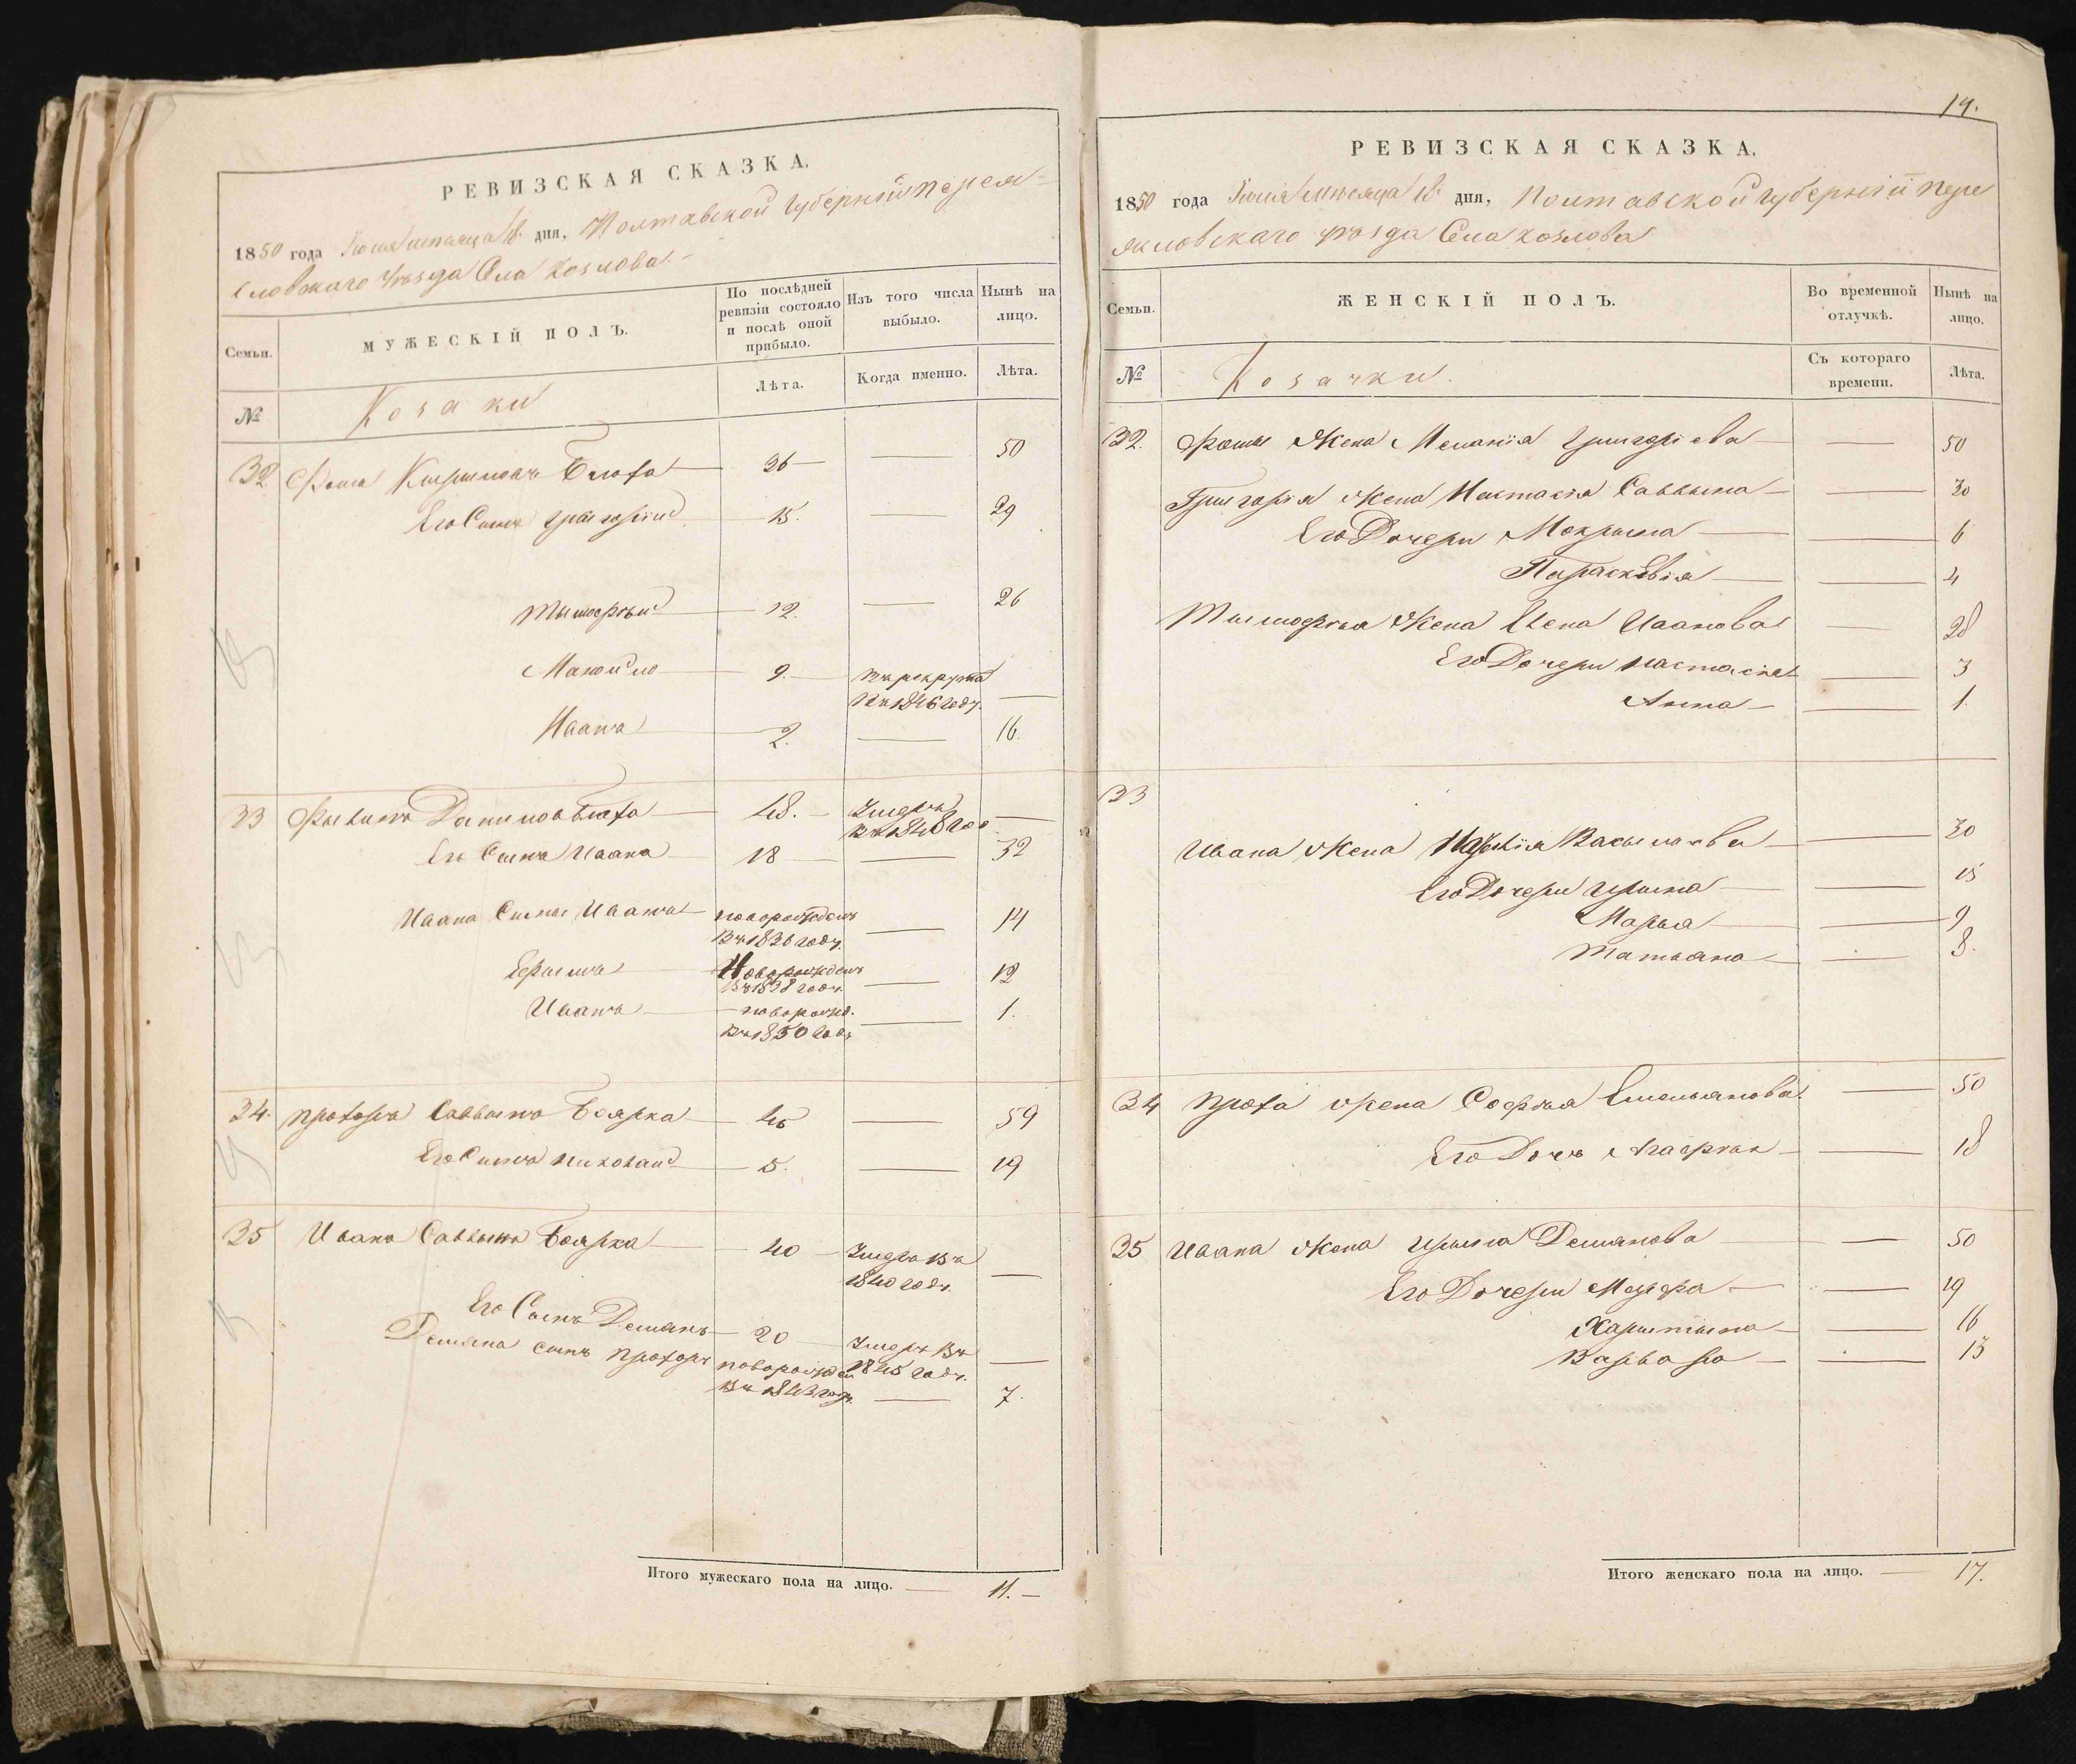 РЕВИЗСКАЯ СКАЗКА.
1850 года Июня месяца 16 дня, Полтавской Губерніи Переяс-
ловскаго Уѣзда Села Козлова.
Семьи.
МУЖЕСКІЙ ПОЛЪ.
По послѣдней ревизіи состояло и послѣ оной прибыло.
Изъ того числа выбыло.
Нынѣ на лицо.
№
Козаки
Лѣта.
Когда именно.
Лѣта.
32. Фома 36 50
Его Сынъ Григорій 15. 29
Тымофѣй 12. 26
Манойло 9. въ рекруты
въ 1846 году.
Иванъ 2. 16.
33 48. Умеръ
въ 1840 год
Его Сынъ Иванъ 18 32
Ивана Сыны Иванъ новорожденъ 14
въ 1836 году.
Новорожденъ 12
въ 1838 году.
Иванъ новорожд. 1.
въ 1850 году
34. Прохоръ Саввинъ Боярка 45 59
Его Сынъ Николай 5. 19
35 Иванъ Саввинъ Боярка 40 Умеръ въ
1840 году.
Его Сынъ Демянъ 20 Умеръ въ
1845 году.
Демяна сынъ Прохоръ новорожден
въ 1843 году. 7.
Итого мужескаго пола на лицо. 11.
19.
РЕВИЗСКАЯ СКАЗКА.
1850 года Июня месяца 16 дня, Полтавской Губерніи Пере
яславскаго уѣзда Села Козлова
Семьи.
ЖЕНСКІЙ ПОЛЪ.
Во временной отлучкѣ.
Нынѣ на лицо.
№
Козачки.
Съ котораго времени.
Лѣта.
32. Фомы Жена Меланія Григоріева 50
Григорія жена Настасія Саввина 30
Его Дочери Мокрына 6
Парасковія 4
Тымофѣя Жена Елена Иванова 28
Его Дочери Настасія 3
Анна 1.
33
Ивана жена Марія 30
Его Дочери Ирына 15
Марья 9
Татьяна 8.
34 Прохора жена Софія Емельянова 50
Его Дочь Агафія 18
35 Ивана жена Ирына Демянова 50
Его Дочери 19
Харитына 16
Варвара 13
Итого женскаго пола на лицо. 17.